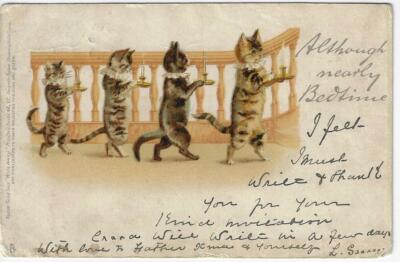 Although
nearly
Bedtime
I felt
I must
write & thank
You for your
kind invitation
will write in a few days
With love to Father Xmas & yourself L.